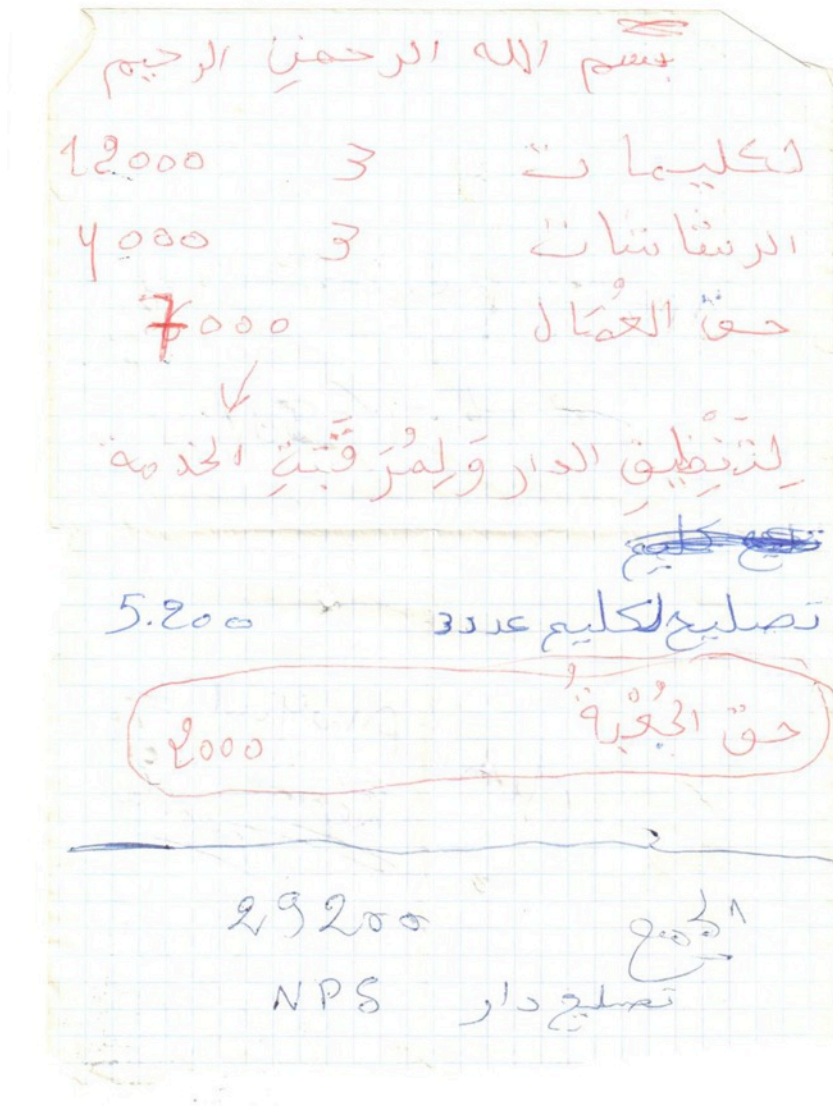 بسم الله الرحمن الرحيم
لكليمات 3 12000
الرشاشات 3 4000
حق العُمَال 7000
لِتَنْظِيفِ الدار وَلِمُرَقَبَةِ الخدمة
تصليح لكليم عدد 3 5.200
حق 2000
الجمع 29200
تصليح دار NPS